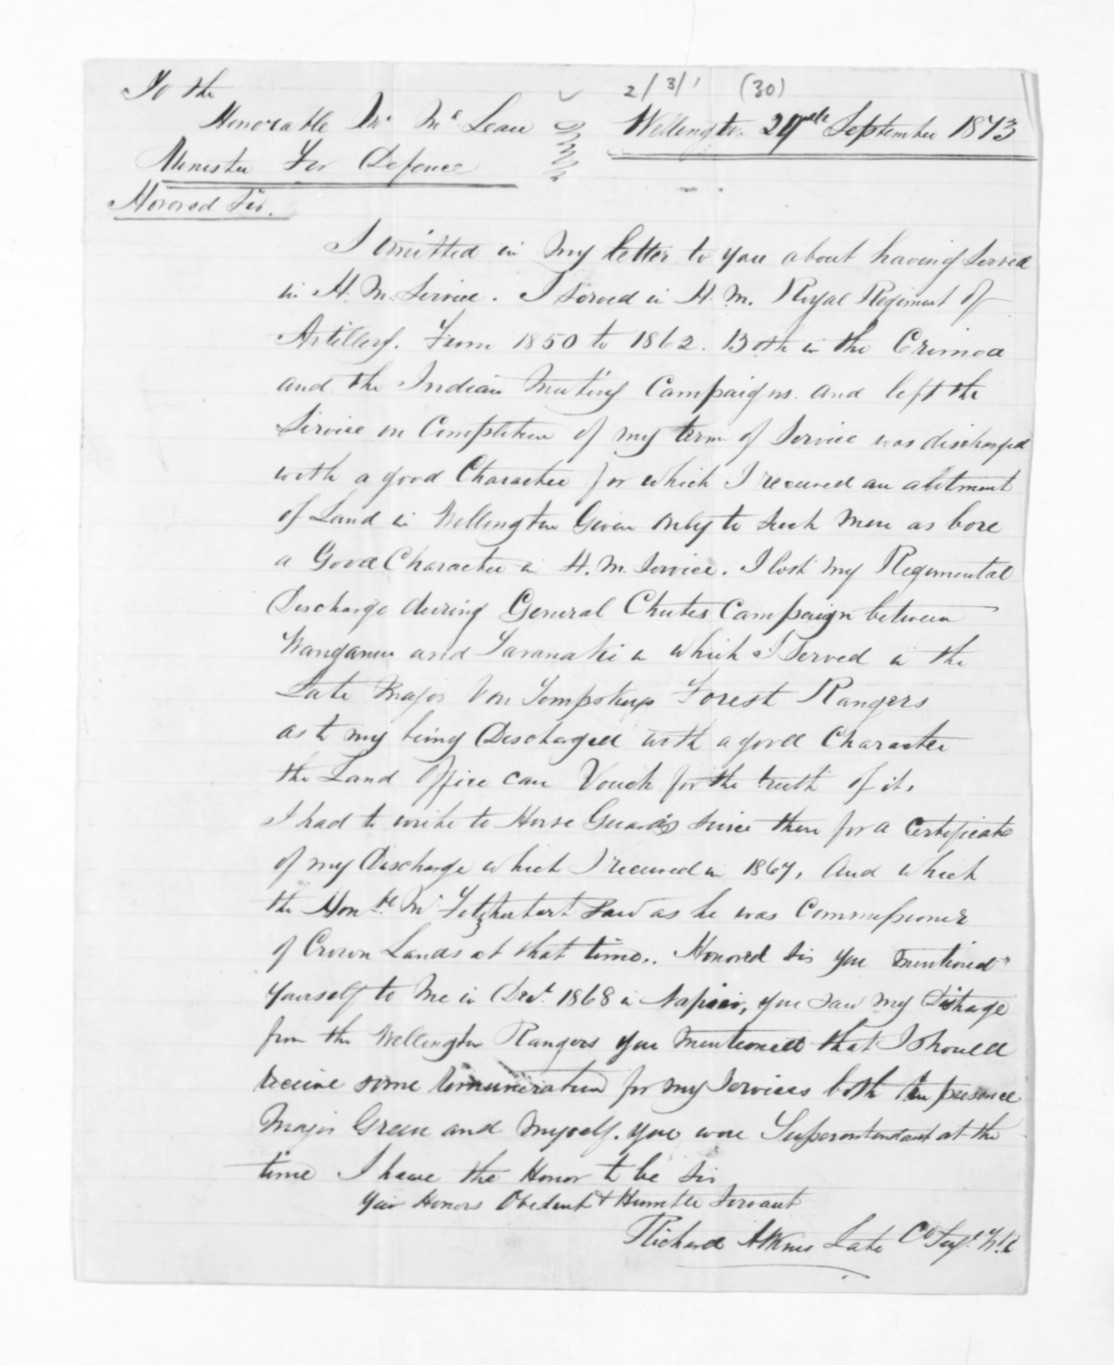 2/3/1 (30)
To the
Honorable Mr McLean
Wellington 29th September 1873
Minister For Defence
Honored Sir.
I omitted in my letter to you about having Served
in H.M. Service. I Served in H.M. Royal Regiment of
Artillery. From 1850 to 1862. Both in the Crimea
and the Indian Mutiny Campaigns. and left the
Service on Completion of my term of Service was discharged
with a good Character for which I received an alotment
of Land in Wellington Given only to Such Men as bore
a Good Character in H.M. Service. I lost my Regimental
Discharge during General Chutes Campaign between
Wanganui and Taranaki in which I Served in the
Late Major Von Tempskys Forest Rangers
as to my being Discharged with a good Character
the Land Office can Vouch for the truth of it.
I had to write to Horse Guards since then for a Certificate
of my Discharge which I received in 1867. And which
the Honble Mr Fitzherbert saw as he was Commissioner
of Crown Lands at that time.. Honored Sir you mentioned
yourself to me in Decr. 1868 in Napier, you saw my Discharge
from the Wellington Rangers you mentioned that I should
receive some remuneration for my Services both in presence
Major Green and Myself. you were Superintendant at the
time I have the Honor to be Sir
Your Honors Obedient & Humble Servant
Richard Late